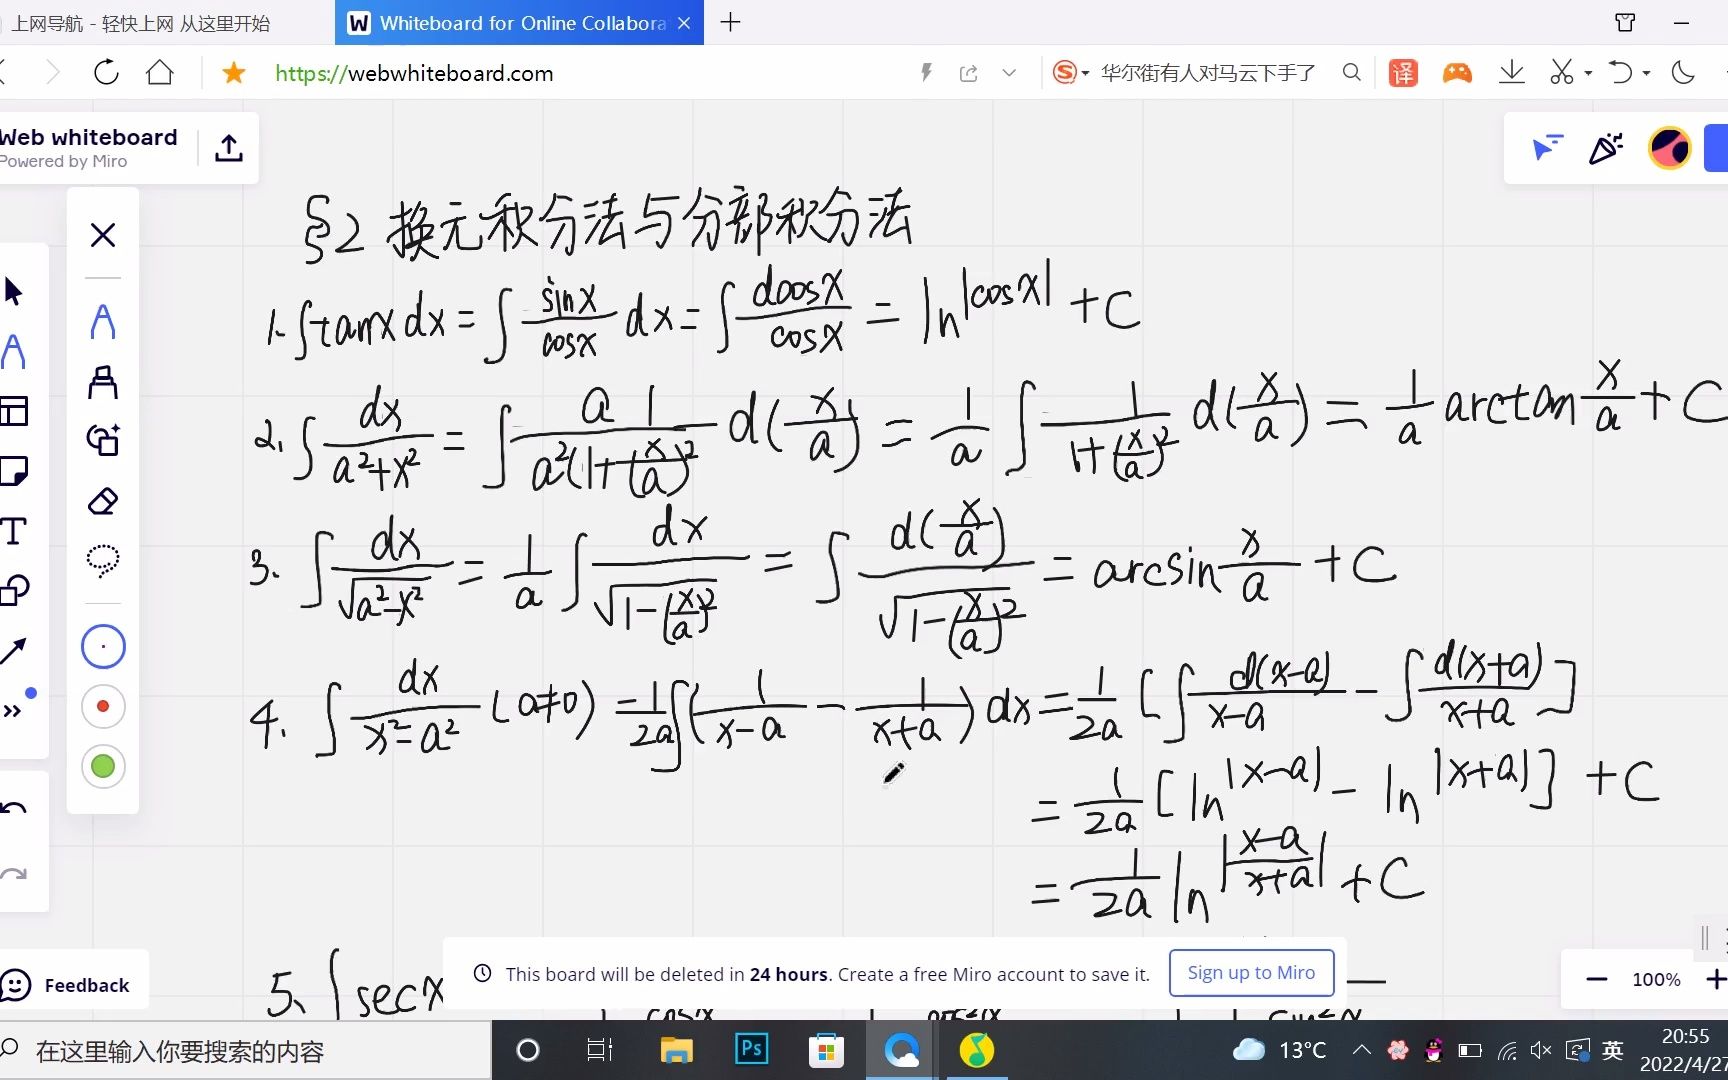 上网导航 - 轻快上网 从这里开始
Whiteboard for Online Collabora
https://webwhiteboard.com
华尔街有人对马云下手了
译
Web whiteboard
Powered by Miro
§2 换元积分法与分部积分法
1. ∫tanx dx = ∫ sinx/cosx dx = ∫ dcosx/cosx = ln|cosx| + C
2. ∫ dx/(a²+x²) = ∫ a 1/(a²(1+(x/a)²)) d(x/a) = 1/a ∫ 1/(1+(x/a)²) d(x/a) = 1/a arctan x/a + C
3. ∫ dx/√(a²-x²) = 1/a ∫ dx/√(1-(x/a)²) = ∫ d(x/a)/√(1-(x/a)²) = arcsin x/a + C
4. ∫ dx/(x²-a²) (a≠0) = 1/2a ∫(1/(x-a) - 1/(x+a)) dx = 1/2a [∫ d(x-a)/(x-a) - ∫ d(x+a)/(x+a)]
= 1/2a [ln|x-a| - ln|x+a|] + C
= 1/2a ln|(x-a)/(x+a)| + C
5. ∫ secx
This board will be deleted in 24 hours. Create a free Miro account to save it.
Sign up to Miro
Feedback
100%
在这里输入你要搜索的内容
Ps
13°C
英
20:55
2022/4/27